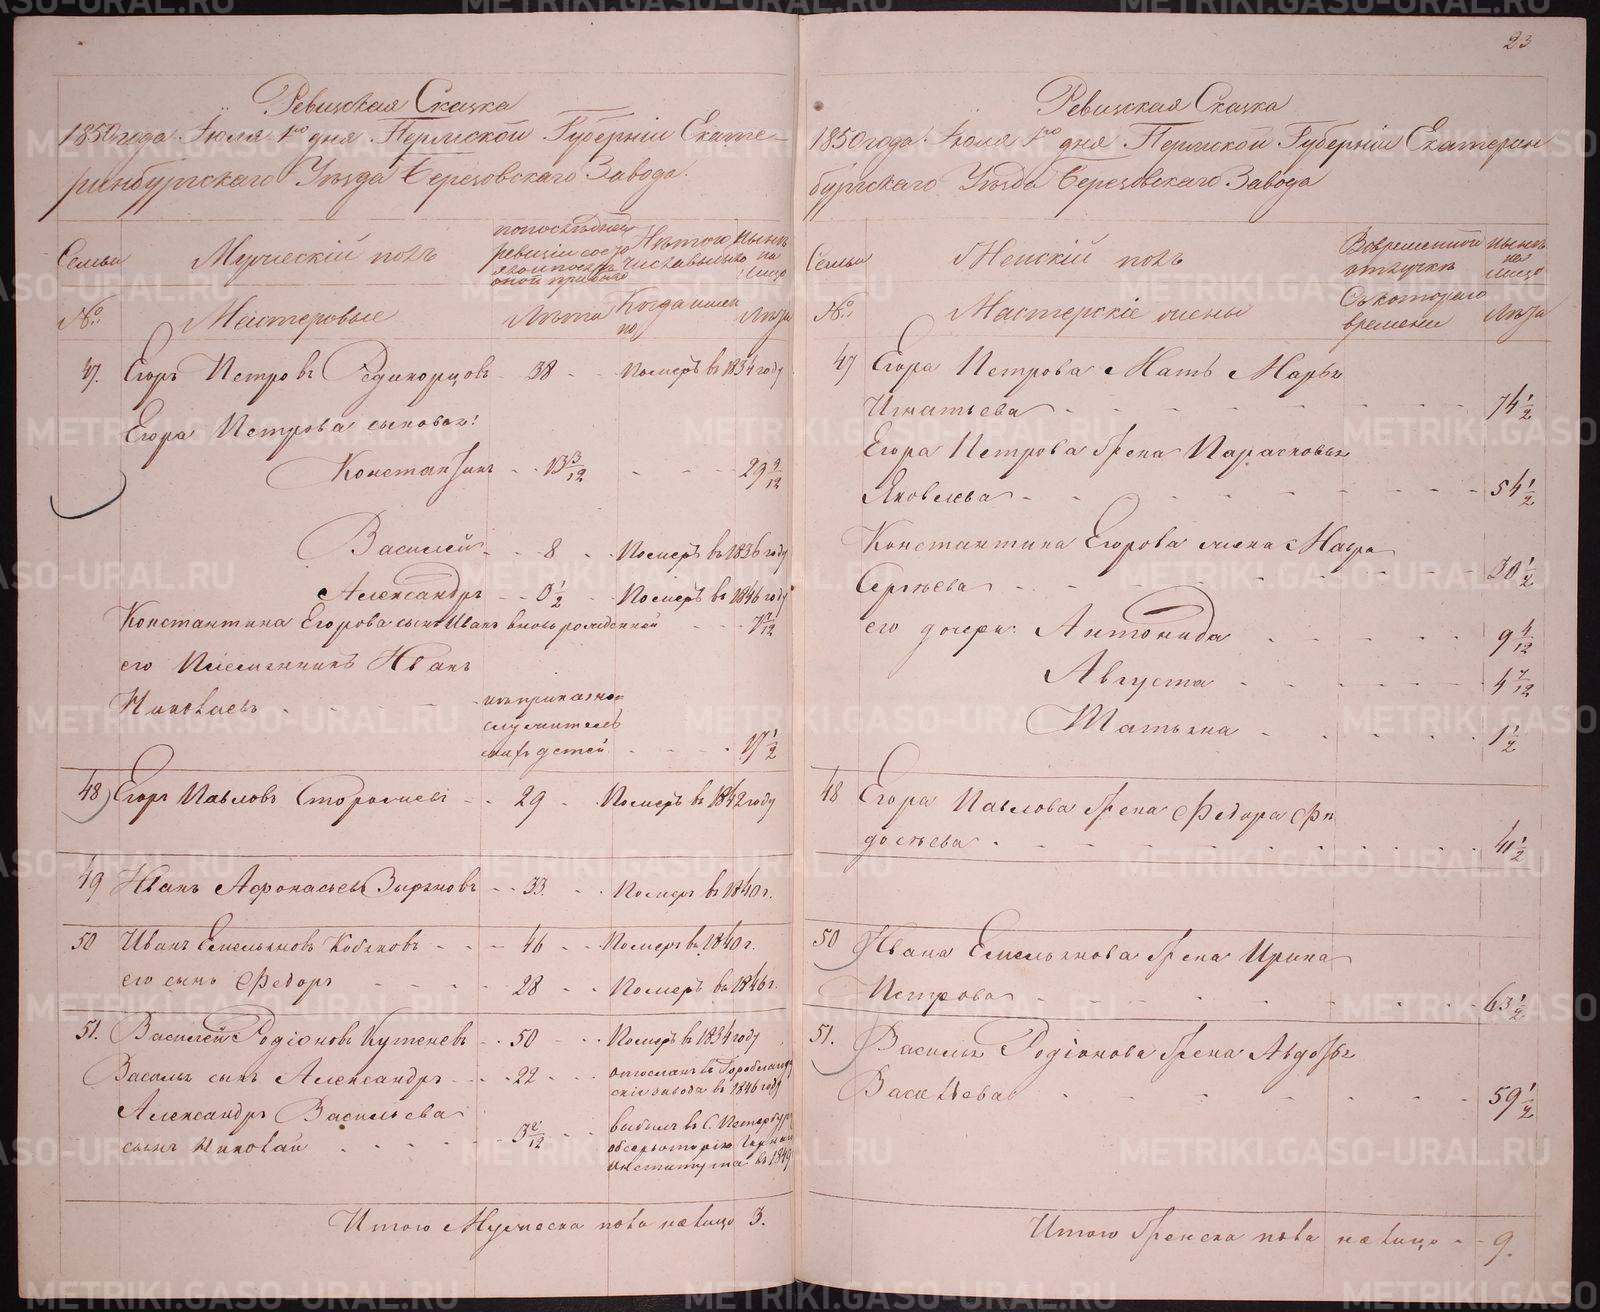 Ревизская Сказка
1850 года Іюля 1го дня Пермской Губерніи Екате-
ринбургскаго Уѣзда Березовскаго Завода.
Семьи
Мужескій полъ
по последней
ревизіи состо
Изъ того
числа выбыло
Нынѣ
на
лицо
№
Мастеровые
Лѣта
Когда имен
но
Лѣта
47. Егоръ Петровъ Редикорцовъ - 38 - Померъ въ 1834 году
Егора Петрова сыновья:
Константинъ - - 13 3/12 - - - 29 9/12
Василей - - 8 - - Померъ въ 1836 году
Александръ - - 0 1/2 - Померъ въ 1846 году
Константина Егорова сынъ Иванъ вновь рожденной - - - 7 /12
его Племянникъ Иванъ
Николаевъ - - - - - изъ приказно-
служитель
скихъ детей - - - - 17 1/2
48 Егоръ Павловъ - - 29 - Померъ въ 1842 году
49 Иванъ Афонасьевъ Зыряновъ - - 33 - - Померъ въ 1840 г.
50 Иванъ Емельяновъ Кобяковъ - - - 46 - - Померъ въ 1840 г.
его сынъ Федоръ - - - - 28 - - Померъ въ 1846 г.
51. Василей Родіоновъ Кутеневъ - - 50 - - - Померъ въ 1834 году
Василья сынъ Александръ - - - 22 - - отосланъ въ Гороблагодат
скіе завода въ 1846 году
Александра Васильева
сынъ Николай - - - - - 3 /12 - - выбылъ въ С. Петербур
обсерваторію Горнаго
Института въ 1849
Итого Мужеска пола на лицо 3.
23
Ревизская Сказка
1850 года Іюля 1го дня Пермской Губерніи Екатерин
бургскаго Уѣзда Березовскаго Завода
Семьи
Женскій полъ
Во временной
отлучкѣ
Нынѣ
на
лицо
№
Мастерскіе жены
Съ котораго
времени
Лѣта
47 Егора Петрова Мать Марья
Игнатьева - - - - - - - - - 74 1/2
Егора Петрова Жена Парасковья
Яковлева - - - - - - - - - 54 1/2
Константина Егорова жена Мавра
Сергѣева - - - - - - - - - 30 1/2
его дочери: Антонида - - - - - 9 4/12
Августа - - - - - - 4 7/12
Татьяна - - - - - - 1 1/2
48 Егора Павлова Жена Федора Фи
досѣева - - - - - - - - - 41 1/2
50 Ивана Емельянова Жена Ирина
Петрова - - - - - - - - - 63 1/2
51. Василья Родіонова Жена Авдотья
Васильева - - - - - - - 59 1/2
Итого Женска пола на лицо - - 9.
METRIKI.GASO-URAL.RU